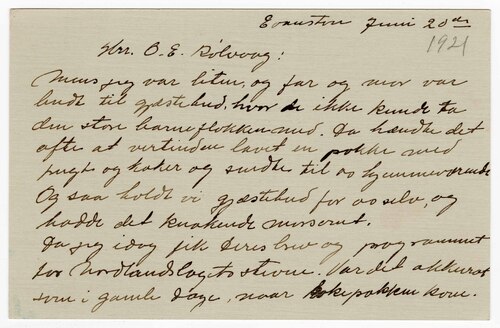 Evanston Juni 20de
1921
Hrr. O. E. Rölvaag:
Mens jeg var liten, og far og mor var
budt til gjæstebud, hvor de ikke kunde ta
den store barneflokken med. Da hændte det
ofte at vertinden lavet en pakke med
og kaker og sendte til os hjemmeværende
Og saa holdt vi gjæstebud for os selv, og
hadde det knakende morsomt.
Da jeg idag fik Deres brev og programmet
for Nordlandlagets stevne. Var det akkurat
som i gamle dage, naar kakepakken kom.